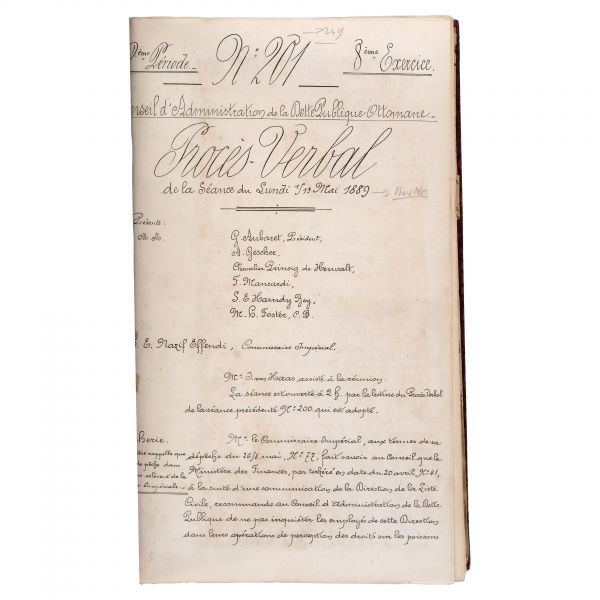 249
ème Période. N° 201 8ème Exercice.
nseil d'Administration de la Dette Publique Ottomane.
Procès-Verbal
de la Séance du Lundi 1/13 Mai 1889
Présents:
M.M. G. Aubaret, Président,
A. Gescher,
Chevalier Prinzig de Herwalt,
F. Mancardi,
S. E. Hamdy Bey,
M. H. Foster, C.B.
. E. Nazif Effendi, Commissaire Impérial.
Mr. Ivens Haas, assiste à la réunion.
La séance est ouverte à 2 h. par la lecture du Procès Verbal
de la séance précédente N° 200 qui est adopté.
cherie. Mr. le Commissaire Impérial, aux termes de sa
rappelle que dépêche du 26/8 mai, N° 77, fait savoir au Conseil que le
pêche dans Ministère des Finances, par teskéré en date du 20 avril N° 41,
relèvent de la à la suite d'une communication de la Direction de la Liste
Impériale. Civile, recommande au Conseil d'Administration de la Dette
Publique de ne pas inquiéter les employés de cette Direction
dans leurs opérations de perception des droits sur les poissons